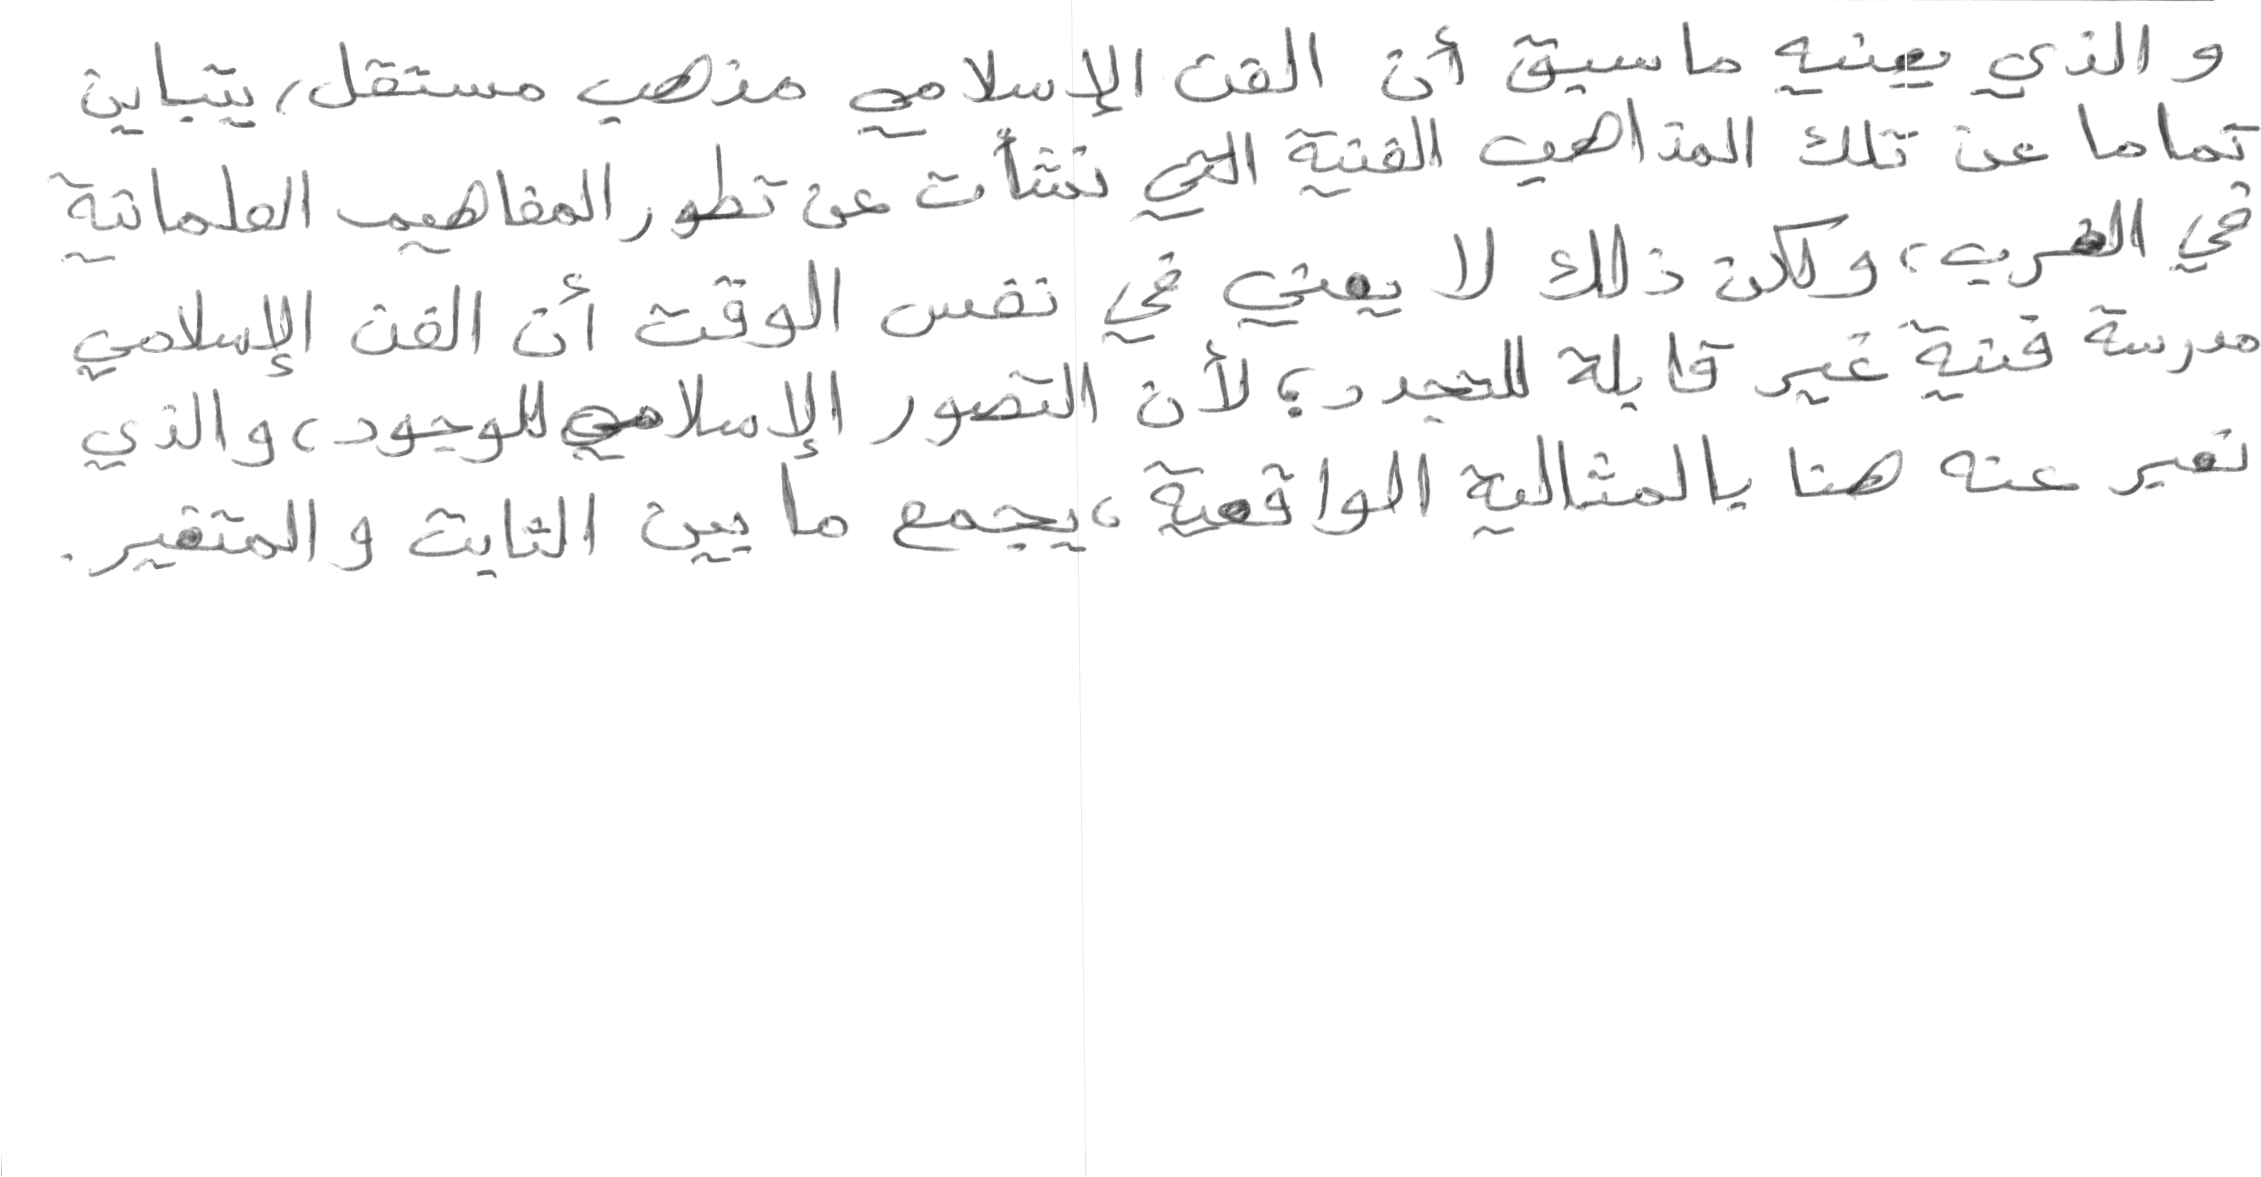 والذي يعنيه ما سبق أن الفن الإسلامي مذهب مستقل، يتباين
تماما عن تلك المذاهب الفنية التي نشأت عن تطور المفاهيم العلمانية
في الغرب، ولكن ذلك لا يعني في نفس الوقت أن الفن الإسلامي
مدرسة فنية غير قابلة للتجدد؛ لأن التصور الإسلامي للوجود، والذي
نعبر عنه هنا بالمثالية الواقعية، يجمع ما بين الثابت والمتغير.